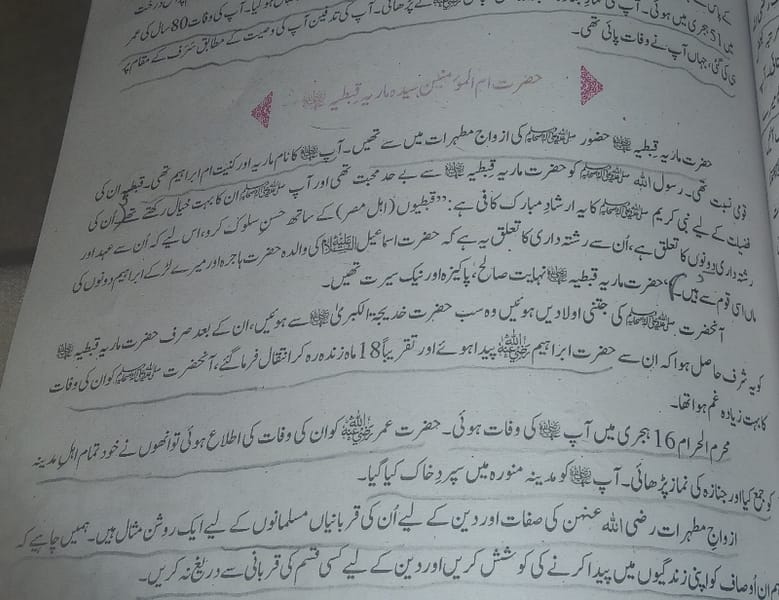 میں 51 ہجری میں ہوئی۔ آپ کی نماز
نے پڑھائی۔ آپ کی تدفین آپ کی وصیت کے مطابق سَرَف کے مقام پر
ی کی گئی، جہاں آپ نے وفات پائی تھی۔ آپ کی وفات 80 سال کی عمر
حضرت ام المؤمنین سیدہ ماریہ قبطیہ رضی اللہ عنہا
حضرت ماریہ قبطیہ رضی اللہ عنہا حضور صلی اللہ علیہ وسلم کی ازواج مطہرات میں سے تھیں۔ آپ رضی اللہ عنہا کا نام ماریہ اور کنیت ام ابراہیم تھی۔ قبطیہ ان کی
قومی نسبت تھی۔ رسول اللہ صلی اللہ علیہ وسلم کو حضرت ماریہ قبطیہ رضی اللہ عنہا سے بے حد محبت تھی اور آپ صلی اللہ علیہ وسلم ان کا بہت خیال رکھتے تھے۔ ان کی
فضیلت کے لیے نبی کریم صلی اللہ علیہ وسلم کا یہ ارشادِ مبارک کافی ہے: ”قبطیوں (اہل مصر) کے ساتھ حسنِ سلوک کرو، اس لیے کہ اُن سے عہد اور
رشتہ داری دونوں کا تعلق ہے، اُن سے رشتہ داری کا تعلق یہ ہے کہ حضرت اسماعیل علیہ السلام کی والدہ حضرت ہاجرہ اور میرے لڑکے ابراہیم دونوں کی
ماں اسی قوم سے ہیں۔“ حضرت ماریہ قبطیہ رضی اللہ عنہا نہایت صالح، پاکیزہ اور نیک سیرت تھیں۔
آنحضرت صلی اللہ علیہ وسلم کی جتنی اولادیں ہوئیں وہ سب حضرت خدیجۃ الکبریٰ رضی اللہ عنہا سے ہوئیں، ان کے بعد صرف حضرت ماریہ قبطیہ رضی اللہ عنہا
کو یہ شرف حاصل ہوا کہ ان سے حضرت ابراہیم رضی اللہ عنہ پیدا ہوئے اور تقریباً 18 ماہ زندہ رہ کر انتقال فرما گئے، آنحضرت صلی اللہ علیہ وسلم کو ان کی وفات
کا بہت زیادہ غم ہوا تھا۔
محرم الحرام 16 ہجری میں آپ رضی اللہ عنہا کی وفات ہوئی۔ حضرت عمر رضی اللہ عنہ کو ان کی وفات کی اطلاع ہوئی تو انھوں نے خود تمام اہلِ مدینہ
کو جمع کیا اور جنازہ کی نماز پڑھائی۔ آپ رضی اللہ عنہا کو مدینہ منورہ میں سپردِ خاک کیا گیا۔
ازواج مطہرات رضی اللہ عنہن کی صفات اور دین کے لیے اُن کی قربانیاں مسلمانوں کے لیے ایک روشن مثال ہیں۔ ہمیں چاہیے کہ
ہم ان اوصاف کو اپنی زندگیوں میں پیدا کرنے کی کوشش کریں اور دین کے لیے کسی قسم کی قربانی سے دریغ نہ کریں۔